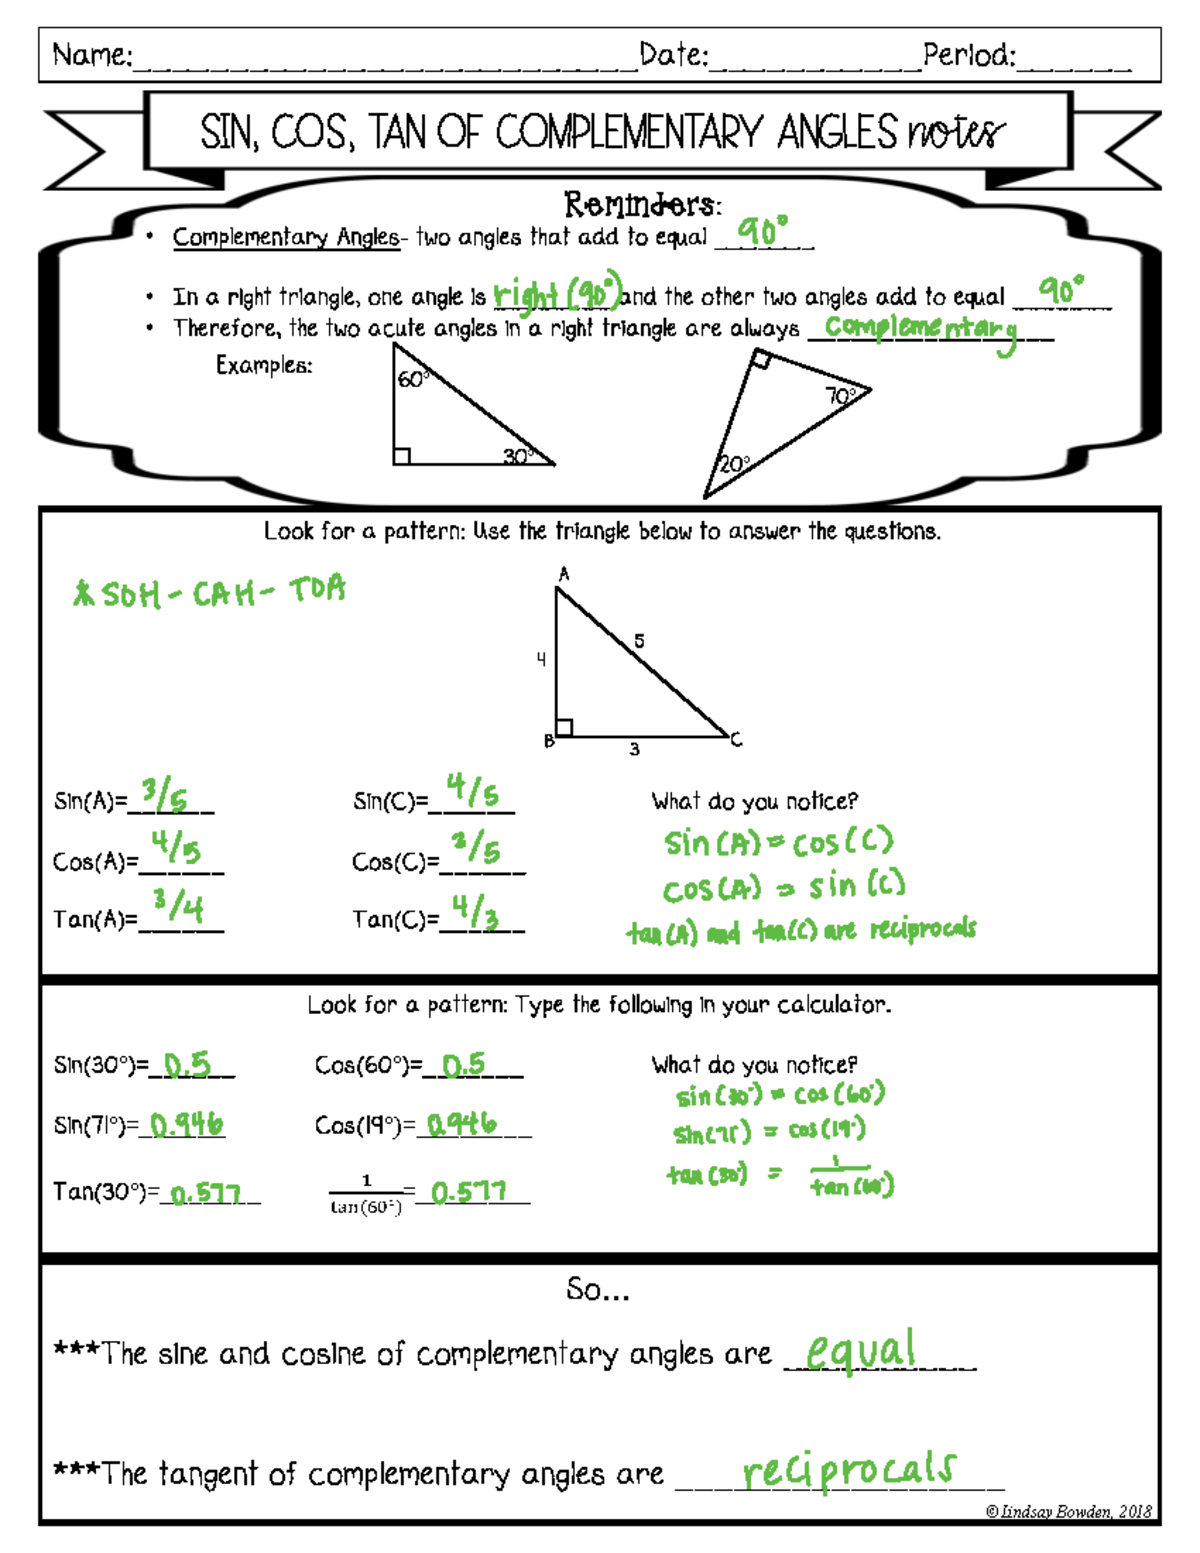 Name:________________________Date:__________Period:______
SIN, COS, TAN OF COMPLEMENTARY ANGLES notes
Reminders:
• Complementary Angles- two angles that add to equal 90°
• In a right triangle, one angle is right (90°) and the other two angles add to equal 90°
• Therefore, the two acute angles in a right triangle are always complementary
Examples:
60°
30°
70°
20°
Look for a pattern: Use the triangle below to answer the questions.
* SOH - CAH - TOA
A
5
4
B
3
C
Sin(A)= 3/5 Sin(C)= 4/5 What do you notice?
sin(A) = cos(C)
Cos(A)= 4/5 Cos(C)= 3/5
cos(A) = sin(C)
Tan(A)= 3/4 Tan(C)= 4/3
tan(A) and tan(C) are reciprocals
Look for a pattern: Type the following in your calculator.
Sin(30°)= 0.5 Cos(60°)= 0.5 What do you notice?
sin(30°) = cos(60°)
Sin(71°)= 0.946 Cos(19°)= 0.946
sin(71°) = cos(19°)
Tan(30°)= 0.577 1/tan(60°)= 0.577
tan(30°) = 1/tan(60°)
So...
***The sine and cosine of complementary angles are equal
***The tangent of complementary angles are reciprocals
© Lindsay Bowden, 2018